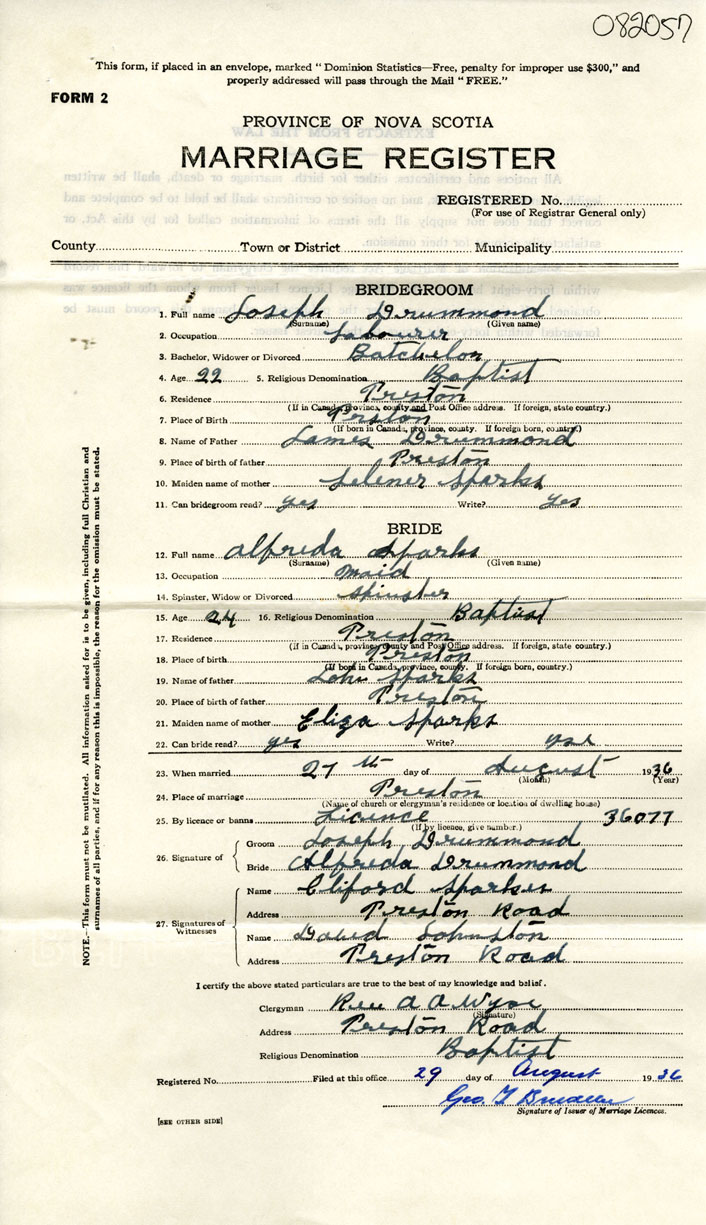 082057
This form, if placed in an envelope, marked "Dominion Statistics—Free, penalty for improper use $300," and
properly addressed will pass through the Mail "FREE."
FORM 2
PROVINCE OF NOVA SCOTIA
MARRIAGE REGISTER
REGISTERED No.
(For use of Registrar General only)
County Town or District Municipality
BRIDEGROOM
1. Full name Joseph Drummond
(Surname) (Given name)
2. Occupation Labourer
3. Bachelor, Widower or Divorced Batchelor
4. Age 22 5. Religious Denomination Baptist
6. Residence Preston
(If in Canada, province, county and Post Office address. If foreign, state country.)
7. Place of Birth Preston
(If born in Canada, province, county. If foreign born, country.)
8. Name of Father James Drummond
9. Place of birth of father Preston
10. Maiden name of mother Selener Sparks
11. Can bridegroom read? yes Write? yes
BRIDE
12. Full name Alfreda Sparks
(Surname) (Given name)
13. Occupation maid
14. Spinster, Widow or Divorced Spinster
15. Age 24 16. Religious Denomination Baptist
17. Residence Preston
(If in Canada, province, county and Post Office address. If foreign, state country.)
18. Place of birth Preston
(If born in Canada, province, county. If foreign born, country.)
19. Name of father John Sparks
20. Place of birth of father Preston
21. Maiden name of mother Eliza Sparks
22. Can bride read? yes Write? yes
23. When married 27th day of August 1936
(Month) (Year)
24. Place of marriage Preston
(Name of church or clergyman's residence or location of dwelling house)
25. By licence or banns Licence 36077
(If by licence, give number.)
26. Signature of Groom Joseph Drummond
Bride Alfreda Drummond
27. Signatures of Witnesses
Name Cliford Sparkes
Address Preston Road
Name David Johnston
Address Preston Road
I certify the above stated particulars are true to the best of my knowledge and belief.
Clergyman Rev A A Wyse
(Signature)
Address Preston Road
Religious Denomination Baptist
Registered No. Filed at this office 29 day of August 1936
Geo. T
Signature of Issuer of Marriage Licences.
[SEE OTHER SIDE]
NOTE.—This form must not be mutilated. All information asked for is to be given, including full Christian and
surnames of all parties, and if for any reason this is impossible, the reason for the omission must be stated.